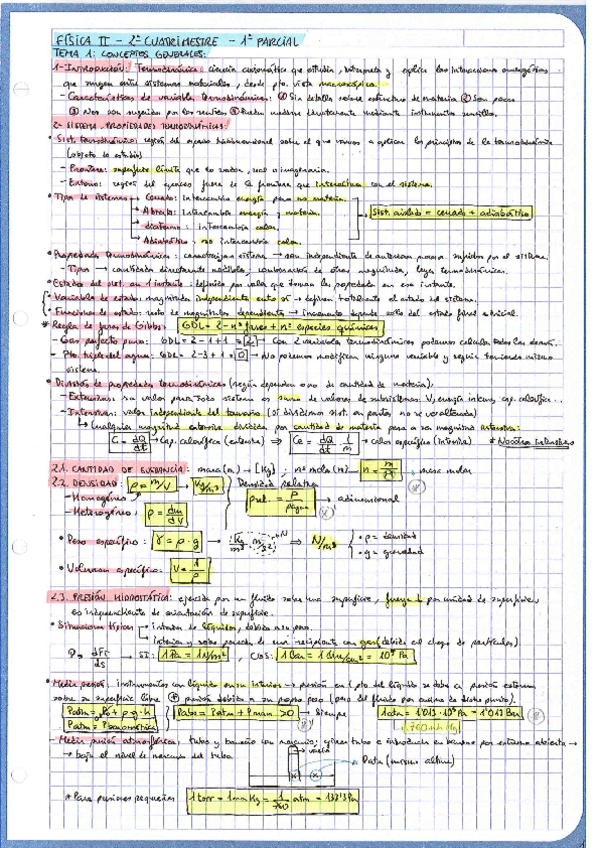 FÍSICA II - 2º CUATRIMESTRE - 1º PARCIAL
TEMA 1: CONCEPTOS GENERALES:
1- INTRODUCCIÓN: Termodinámica: ciencia axiomática que estudia, interpreta y explica las interacciones energéticas
que surgen entre sistemas materiales, desde pto. vista macroscópico.
- Características de variable termodinámica: ① Sin detalle sobre estructura de materia ② Son pocas
③ Nos son sugeridas por los sentidos ④ Pueden medirse directamente mediante instrumentos sencillos.
2- SISTEMA. PROPIEDADES TERMODINÁMICAS:
• Sist. termodinámico: región del espacio tridimensional sobre el que vamos a aplicar los principios de la termodinámica
(objeto de estudio)
- Frontera: superficie límite que lo rodea, real o imaginaria.
- Entorno: región del espacio fuera de la frontera que interactúa con el sistema.
• Tipo de sistemas → Cerrado: Intercambia energía pero no materia.
→ Abierto: Intercambia energía y materia.
→ diatermo: intercambia calor.
→ Adiabático: no intercambia calor.
Sist. aislado = cerrado + adiabático
• Propiedades termodinámicas: caracterizan sistema → son independientes de anteriores procesos sufridos por el sistema.
- Tipos → cantidades directamente medibles, combinación de otras magnitudes, leyes termodinámicas.
• Estado del sist. en 1 instante: definido por valor que toman las propiedades en ese instante.
• Variables de estado: magnitudes independientes entre sí → definen totalmente el estado del sistema.
• Funciones de estado: resto de magnitudes dependientes → incremento depende solo del estado final e inicial.
* Regla de fases de Gibbs: GDL = 2 - nº fases + nº especies químicas
- Gas perfecto puro: GDL = 2 - 1 + 1 = 2 → Con 2 variables termodinámicas podemos calcular todas las demás.
- Pto. triple del agua: GDL = 2 - 3 + 1 = 0 → No podemos modificar ninguna variable y seguir teniendo mismo
sistema.
• División de propiedades termodinámicas (según dependan o no de cantidad de materia):
- Extensivas: su valor para todo sistema es suma de valores de subsistemas: V, energía interna, cap. calorífica...
- Intensivas: valor independiente del tamaño (si dividimos sist. en partes, no se ve alterada)
↳ Cualquier magnitud extensiva dividida por cantidad de materia pasa a ser magnitud intensiva:
C = dQ/dt → Cap. calorífica (extensiva) ⇒ Ce = dQ/dt 1/m → calor específico (intensiva)
2.1. CANTIDAD DE SUSTANCIA: masa (m) → [Kg] ; nº mols (n) → n = m/M → masa molar
2.2. DENSIDAD: ρ = m/V → Kg/m³ Densidad relativa
- Homogéneo
ρrel. = ρ/ρagua → adimensional
- Heterogéneo: ρ = dm/dV
• Peso específico: γ = ρ · g → Kg/m³ · m/s² ⇒ N/m³
• ρ = densidad
• g = gravedad
• Volumen específico: V = 1/ρ
2.3. PRESIÓN HIDROSTÁTICA: ejercida por un fluido sobre una superficie, fuerza ⊥ por unidad de superficie,
es independiente de orientación de superficie.
• Situaciones típicas → interior de líquidos, debido a su peso.
↳ interior y sobre paredes de un recipiente con gas (debida al choque de partículas).
P = dF/ds → SI: 1 Pa = 1 N/m², CGS: 1 Bar = 10⁵ Pa
• Medir presión: instrumentos con líquido en su interior → presión en 1 pto del líquido se debe a: presión externa
sobre su superficie libre ⊕ presión debida a su propio peso (peso del fluido por encima de dicho punto).
Pabs = Patm + Pman > 0 → Siempre
1 atm = 1'013 · 10⁵ Pa = 1'013 Bar
760 mm Hg
- Medir presión atmosférica: tubo y bañera con mercurio; giran tubo e introducen en bañera por extremo abierto →
→ bajo el nivel de mercurio del tubo.
→ vacío
Patm (misma altura)
* Para presiones pequeñas 1 torr = 1 mm Hg = 1/760 atm = 133'3 Pa